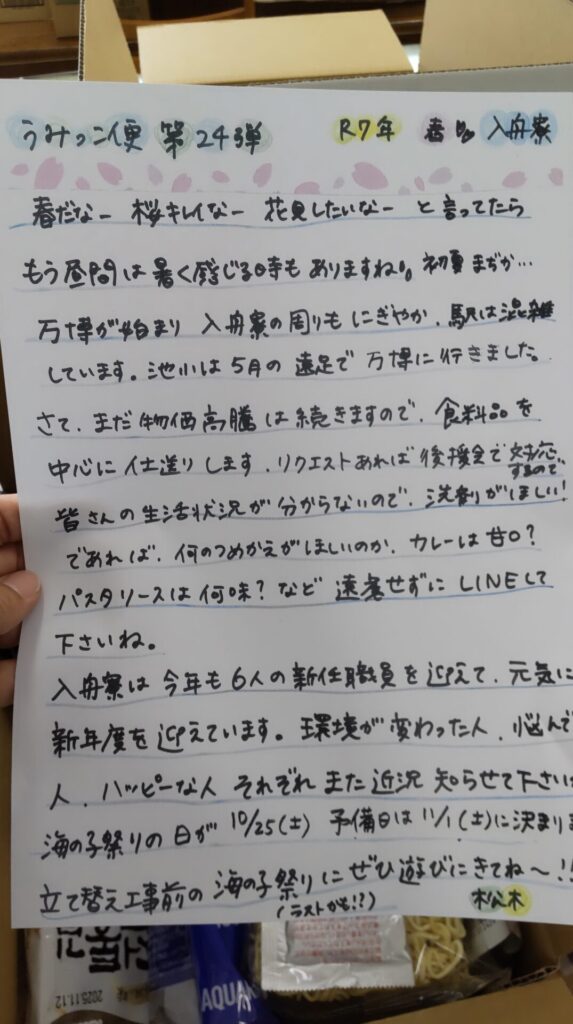 うみっこ便 第24弾 R7年 春号 入舟寮
春だなー 桜キレイなー 花見したいなー と言ってたら
もう昼間は暑く感じる時もありますね。初夏まぢか…
万博が始まり 入舟寮の周りもにぎやか、駅は混雑
しています。池小は5月の遠足で万博に行きました。
さて、まだ物価高騰は続きますので、食料品を
中心に仕送りします。リクエストあれば後援会で対応
するので
皆さんの生活状況が分からないので、洗剤がほしい!
であれば、何のつめかえがほしいのか、カレーは甘口?
パスタソースは何味?など 遠慮せずにLINEして
下さいね。
入舟寮は今年も6人の新任職員を迎えて、元気に
新年度を迎えています。環境が変わった人、悩んで
人、ハッピーな人 それぞれ また近況 知らせて下さい
海の子祭りの日が 10/25(土) 予備日は 11/1(土)に決まりま
立て替え工事前の 海の子祭りにぜひ遊びにきてね〜!!
(ラストかも!?) 松木
2025.11.12
AQUA